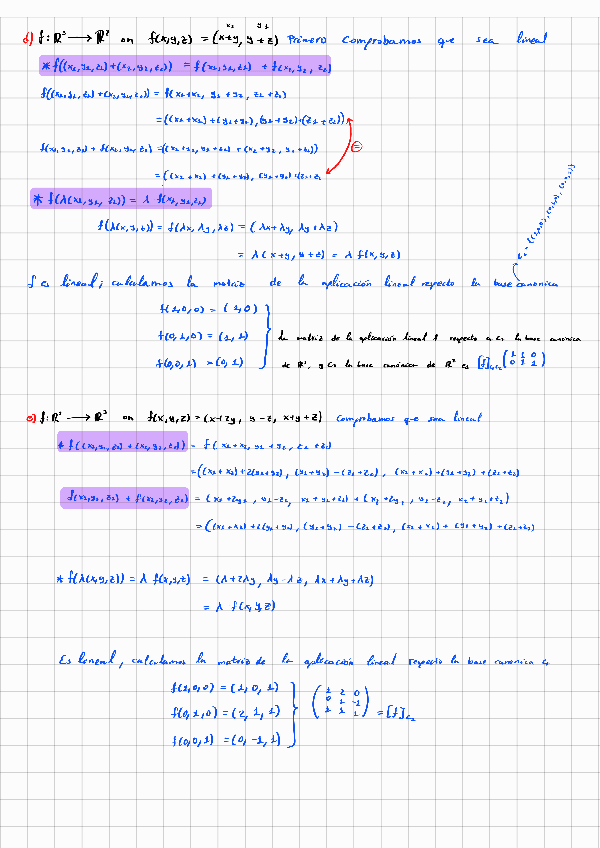 x₁ y₁
d) f: ℝ³ → ℝ² con f(x,y,z) = (x+y, y+z) Primero comprobamos que sea lineal
* f((x₁,y₁,z₁)+(x₂,y₂,z₂)) = f(x₁,y₁,z₁) + f(x₂,y₂,z₂)
f((x₁,y₁,z₁)+(x₂,y₂,z₂)) = f(x₁+x₂, y₁+y₂, z₁+z₂)
= ((x₁+x₂)+(y₁+y₂), (y₁+y₂)+(z₁+z₂))
f(x₁,y₁,z₁) + f(x₂,y₂,z₂) = ((x₁+y₁, y₁+z₁) + (x₂+y₂, y₂+z₂))
=
= ((x₁+x₂) + (y₁+y₂), (y₁+y₂)+(z₁+z₂
* f(λ(x₁,y₁,z₁)) = λ f(x₁,y₁,z₁)
f(λ(x,y,z)) = f(λx, λy, λz) = (λx+λy, λy+λz)
= λ(x+y, y+z) = λ f(x,y,z)
f es lineal; calculamos la matriz de la aplicación lineal respecto la base canonica
f(1,0,0) = (1,0)
f(0,1,0) = (1,1) La matriz de la aplicación lineal f respecto a C₃ la base canonica
f(0,0,1) = (0,1) de ℝ³, y C₂ la base canónica de ℝ² es
(1 1 0
0 1 1)
e) f: ℝ³ → ℝ³ con f(x,y,z) = (x+2y, y-z, x+y+z) Comprobamos que sea lineal
* f((x₁,y₁,z₁) + (x₂,y₂,z₂)) = f(x₁+x₂, y₁+y₂, z₁+z₂)
= ((x₁+x₂)+2(y₁+y₂), (y₁+y₂)-(z₁+z₂), (x₁+x₂)+(y₁+y₂)+(z₁+z₂)
f(x₁,y₁,z₁) + f(x₂,y₂,z₂) = (x₁+2y₁, y₁-z₁, x₁+y₁+z₁) + (x₂+2y₂, y₂-z₂, x₂+y₂+z₂)
= ((x₁+x₂)+2(y₁+y₂), (y₁+y₂)-(z₁+z₂), (x₁+x₂)+(y₁+y₂)+(z₁+z₂)
* f(λ(x,y,z)) = λ f(x,y,z) = (λ+2λy, λy-λz, λx+λy+λz)
= λ f(x,y,z)
Es lineal, calculamos la matriz de la aplicación lineal respecto la base canonica
f(1,0,0) = (1,0,1)
f(0,1,0) = (2,1,1)
f(0,0,1) = (0,-1,1)
(1 2 0
0 1 -1
1 1 1) = [f]